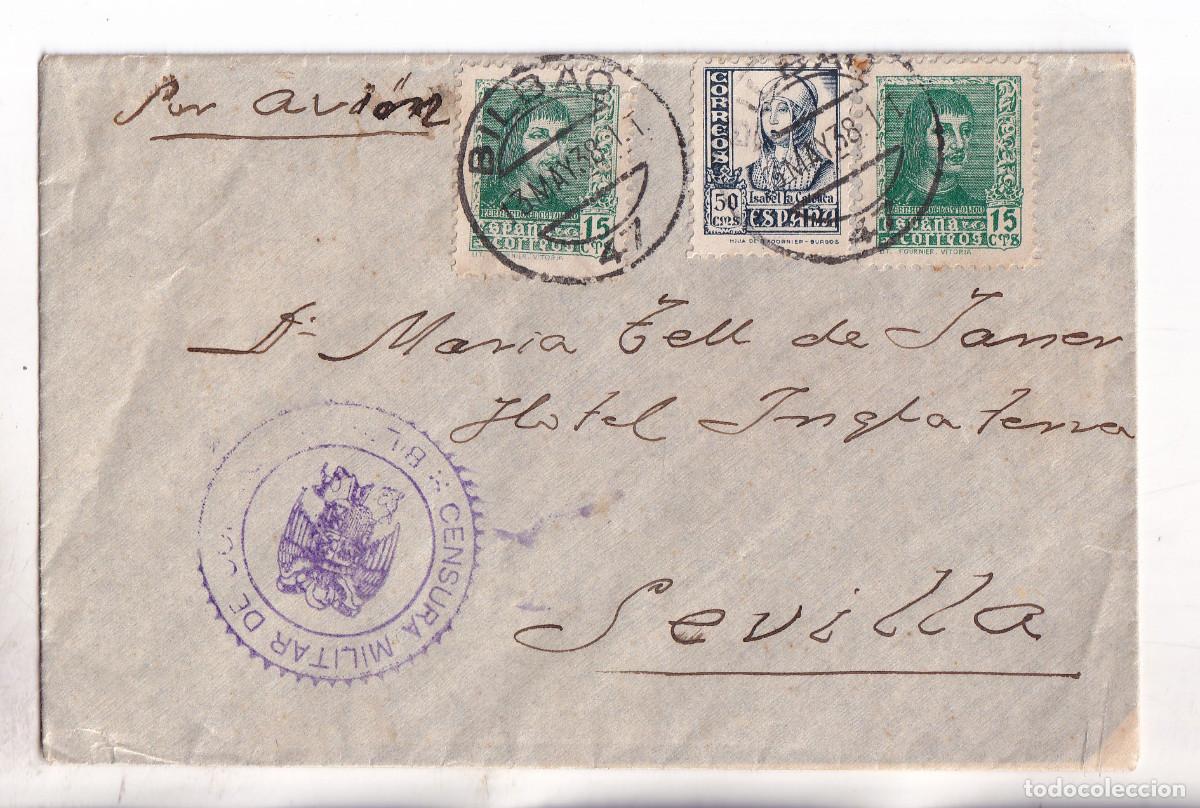 Por avión
BILBAO
3 MAY.38. 1 T
47
FERNANDO EL CATOLICO
ESPAÑA
CORREOS
15 CTS
LIT. FOURNIER. VITORIA
CORREOS
50 CMS
Isabel la Católica
ESPAÑA
HIJA DE B. FOURNIER - BURGOS
BILBAO
MAY.38. 1
47
ESPAÑA
CORREOS
15 CTS
LIT. FOURNIER. VITORIA
Dª Maria Tell de Janer
Hotel Inglaterra
Sevilla
CENSURA MILITAR DE
BIL
todocoleccion